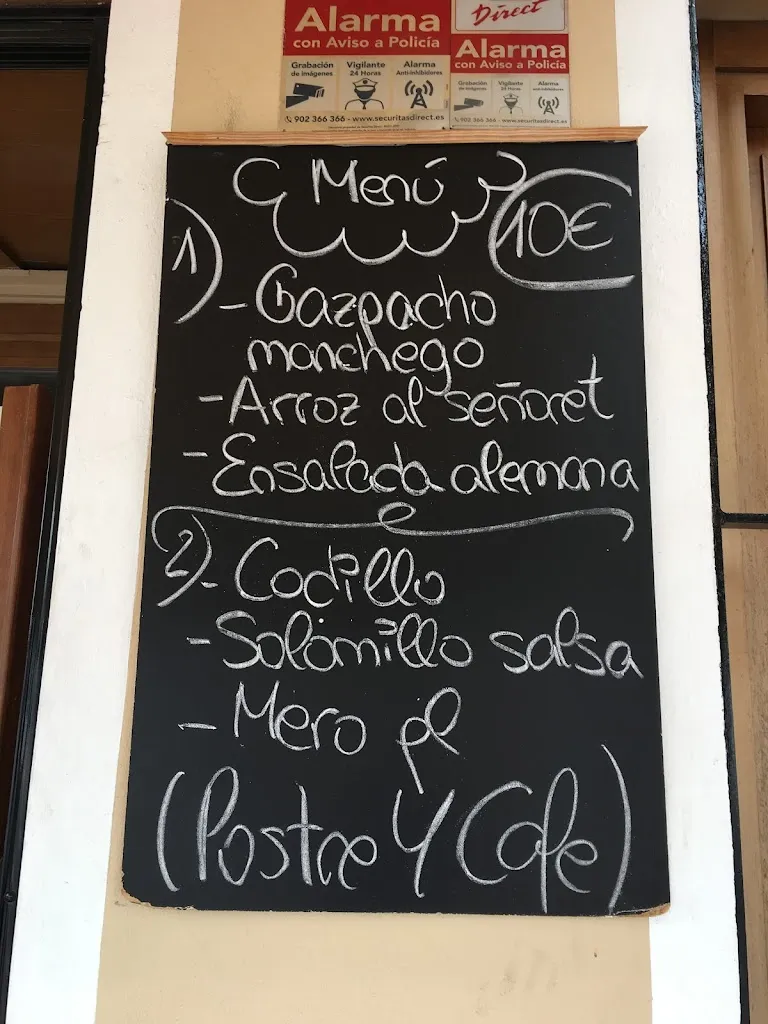 Alarma
con Aviso a Policía
Grabación de imágenes
Vigilante 24 Horas
Alarma Antiinhibidores
902 366 366 - www.securitasdirect.es
Direct
Alarma
con Aviso a Policía
Grabación de imágenes
Vigilante 24 Horas
Alarma
902 366 366 - www.securitasdirect.es
Menú
10€
1) - Gazpacho
manchego
- Arroz al señoret
- Ensalada alemana
2) - Codillo
- Solomillo salsa
- Mero pl
(Postre y Cafe)